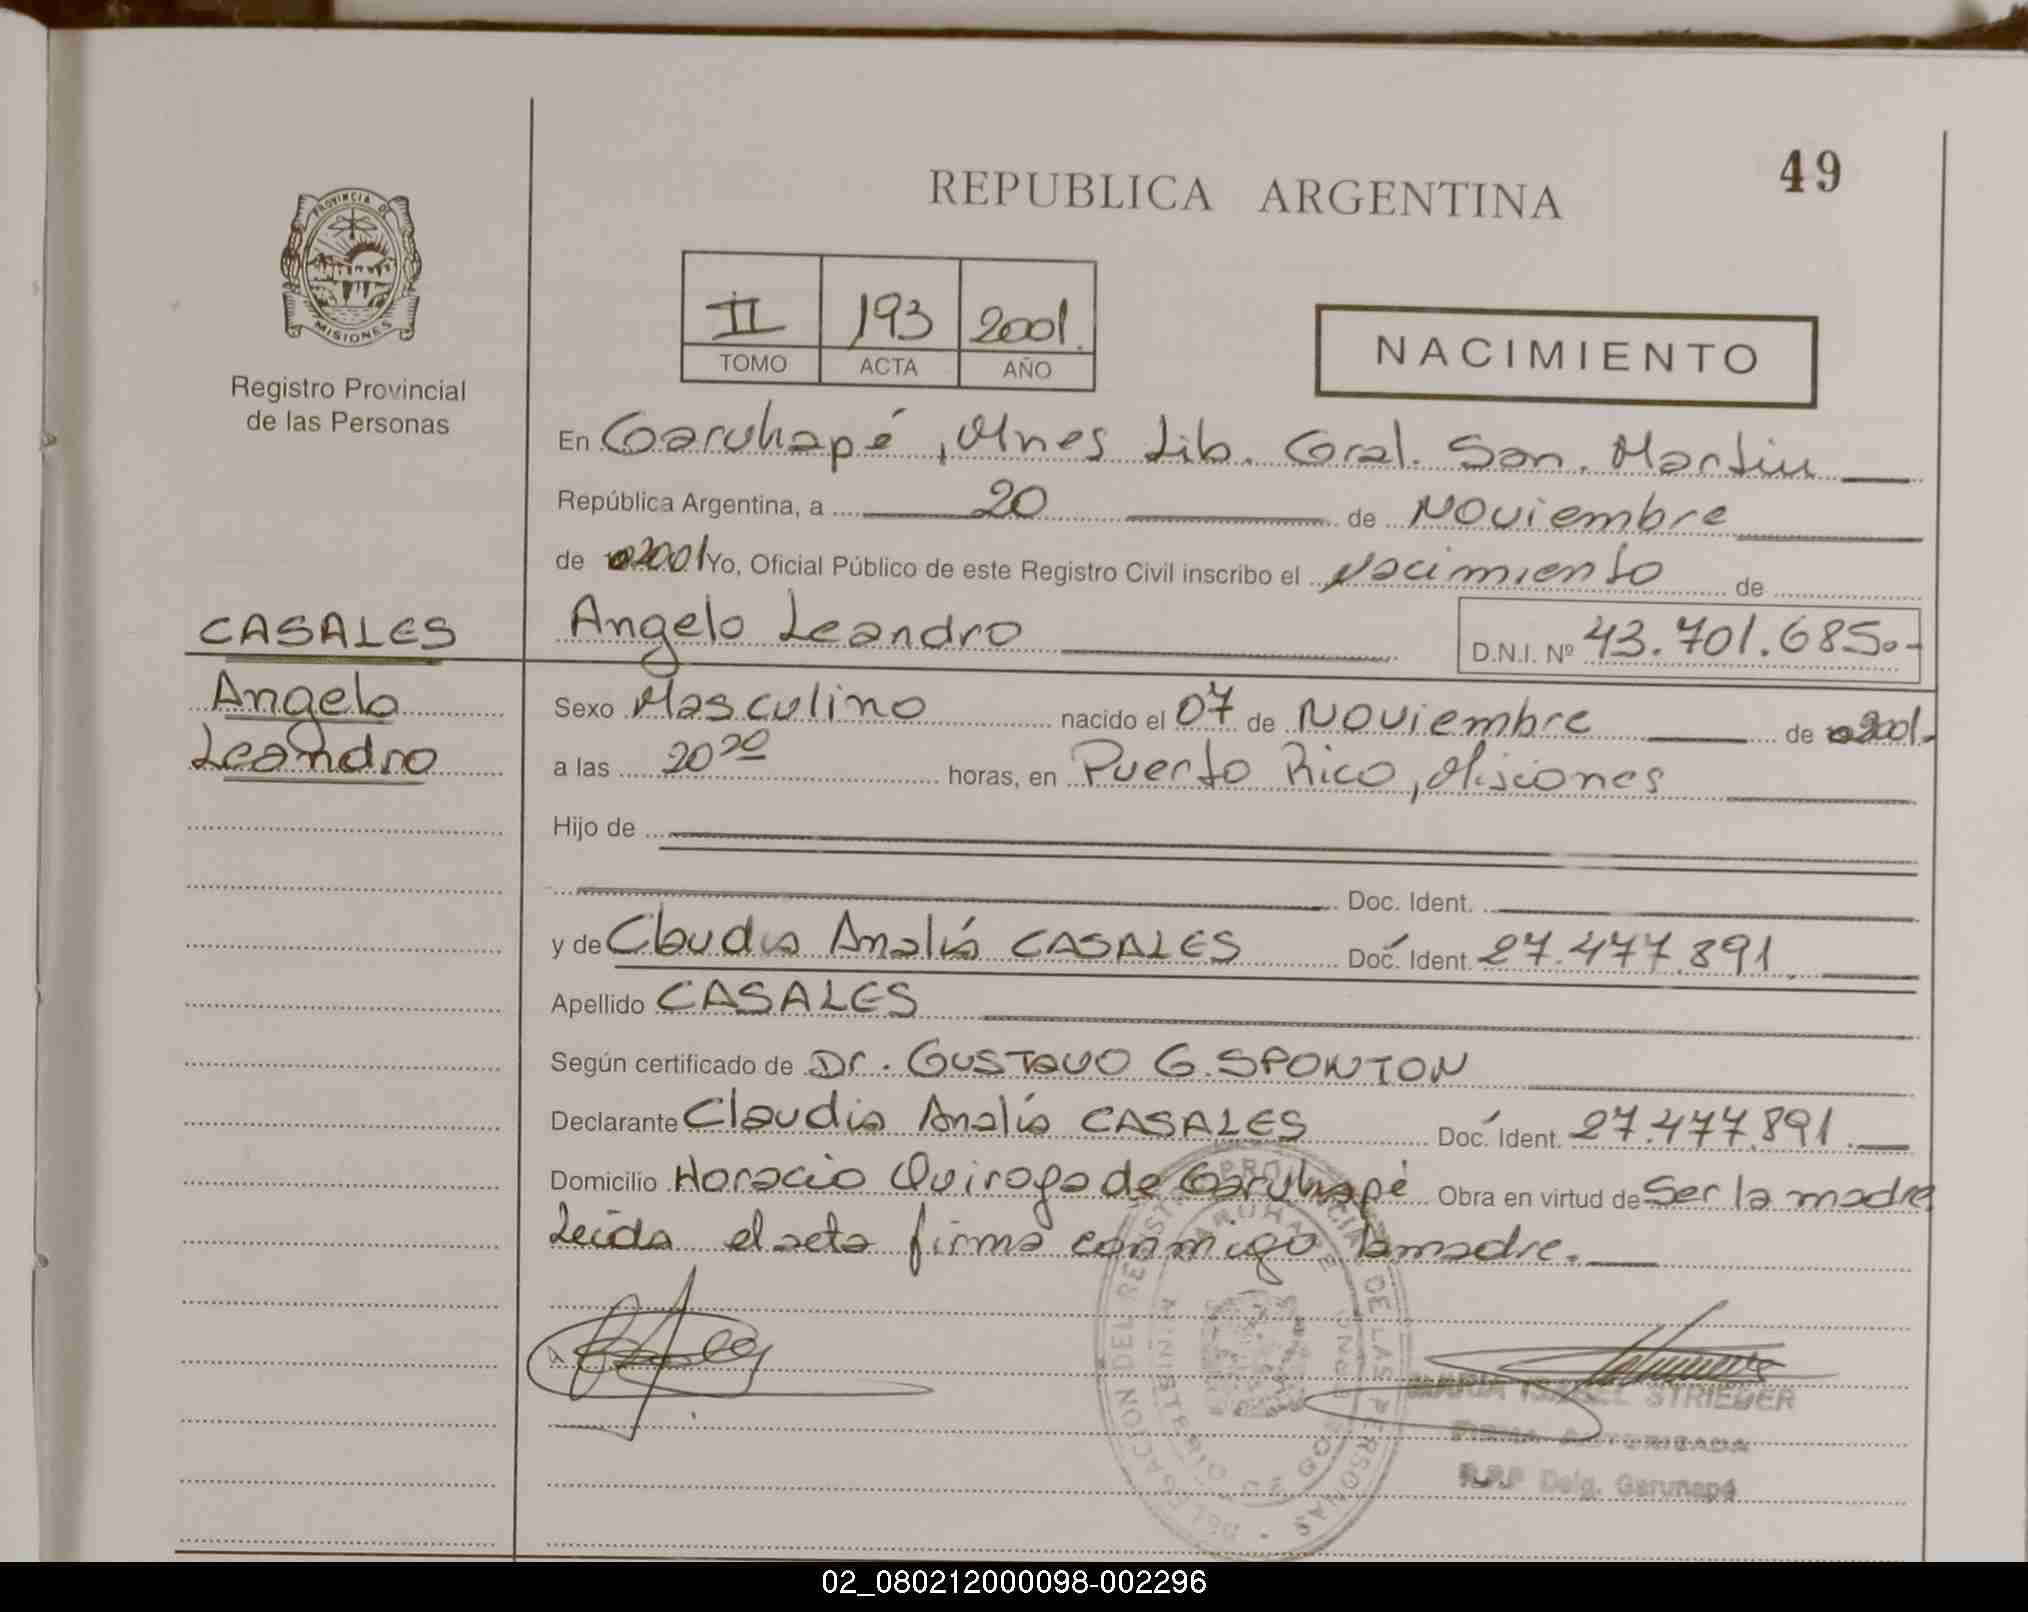 49
REPUBLICA ARGENTINA
PROVINCIA DE
MISIONES
Registro Provincial
de las Personas
II 193 2001.
TOMO ACTA AÑO
NACIMIENTO
En Garuhapé, Mnes Lib. Gral. San. Martin
República Argentina, a 20 de Noviembre
de 2001 Yo, Oficial Público de este Registro Civil inscribo el Nacimiento de
CASALES
Angelo Leandro
D.N.I. Nº 43.701.685.-
Angelo
Leandro
Sexo Masculino nacido el 07 de Noviembre de 2001.
a las 20 20 horas, en Puerto Rico, Misiones
Hijo de
Doc. Ident.
y de Claudia Analía CASALES Doc. Ident. 27.477.891.
Apellido CASALES
Según certificado de Dr. GUSTAVO G. SPONTON
Declarante Claudia Analía CASALES Doc. Ident. 27.477.891.
Domicilio Horacio Quiroga de Garuhapé Obra en virtud de Ser la madre
Leida el acta firma conmigo la madre.
DELEGACION DEL REGISTRO PROVINCIAL DE LAS PERSONAS
GARUHAPE
MARIA ISABEL STRIEDER
FIRMA AUTORIZADA
R.P.P Delg. Garuhapé
02_080212000098-002296